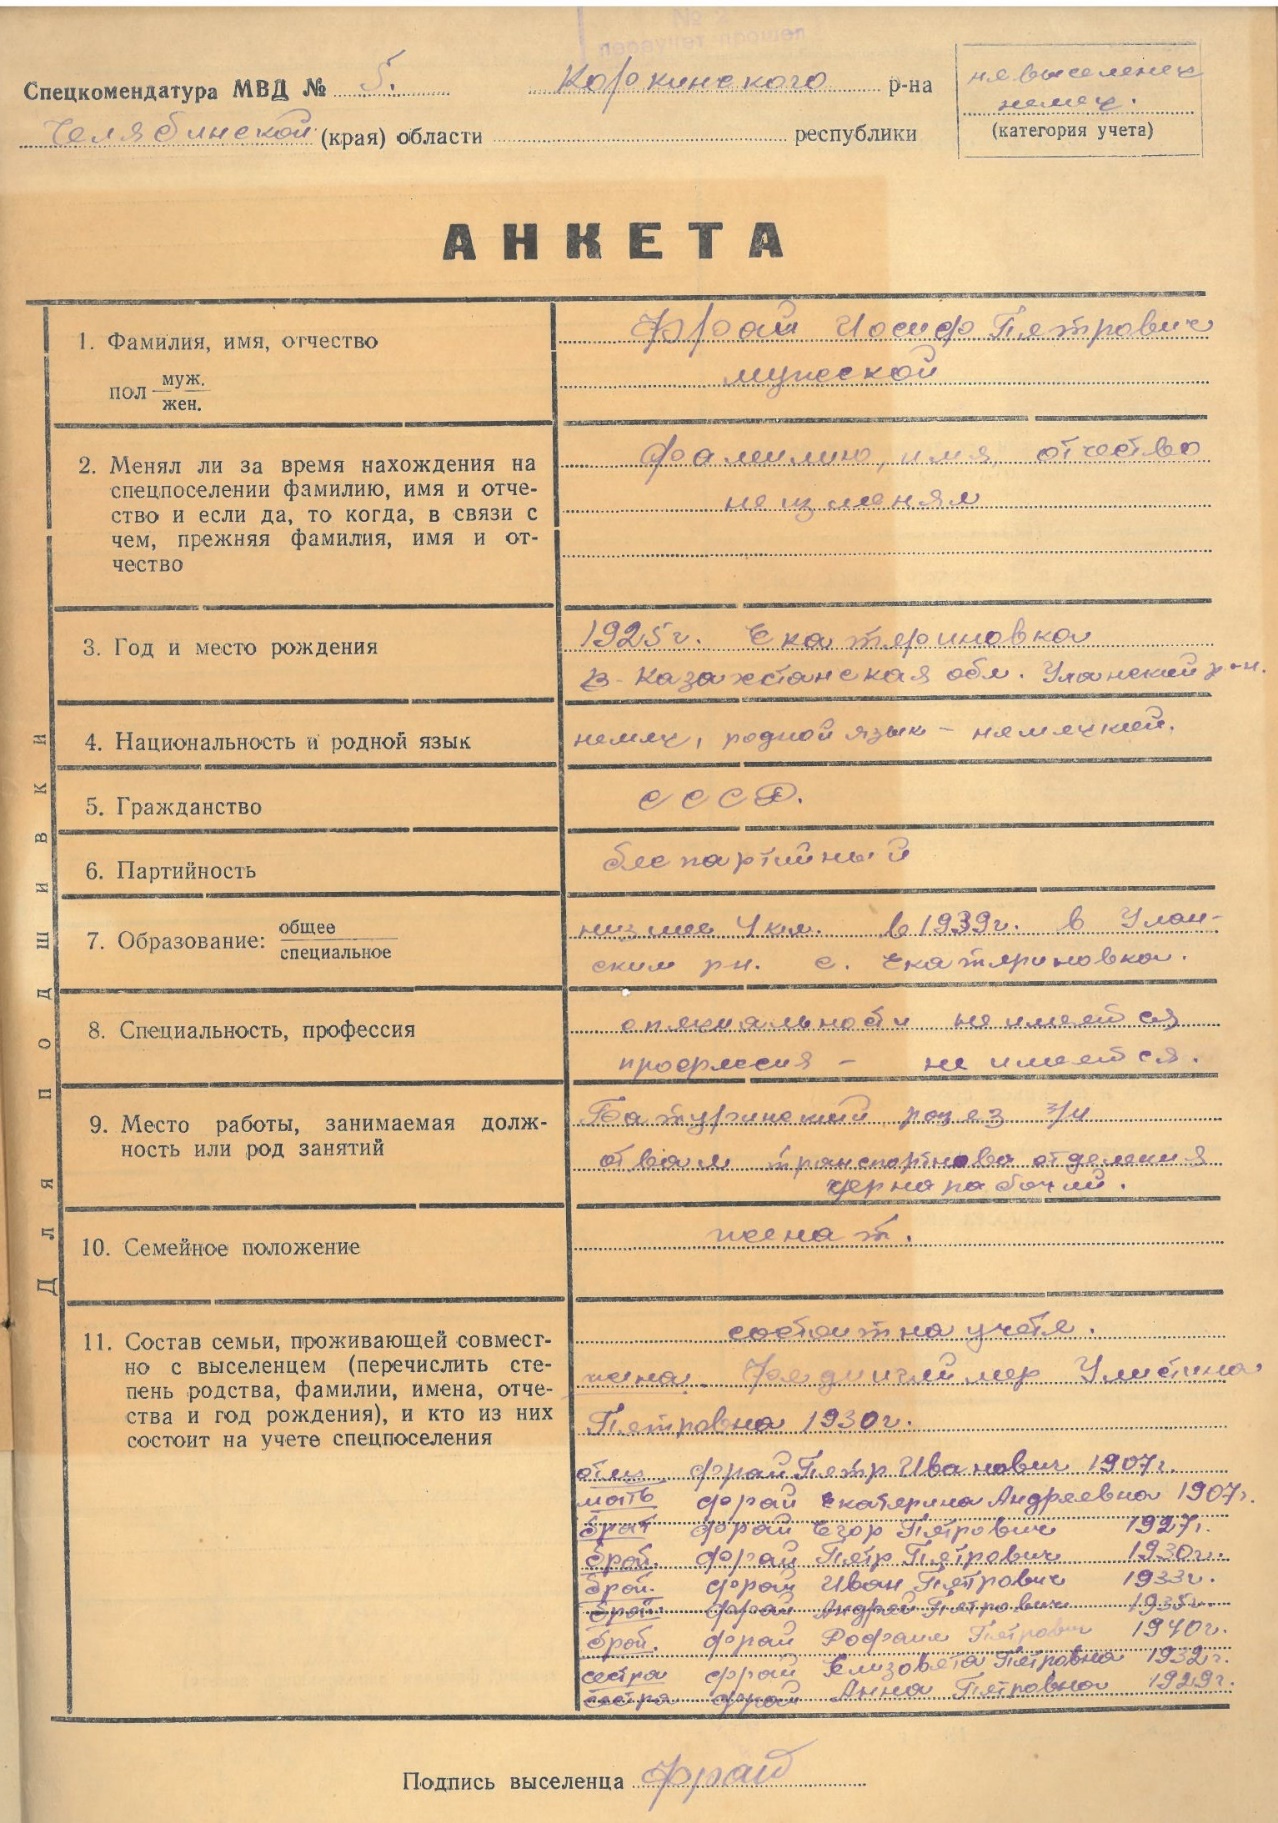 № 2
переучет прошел
Спецкомендатура МВД № 5. Коркинского р-на
невыселенец
немец.
(категория учета)
Челябинской (края) области республики
АНКЕТА
Для подшивки
1. Фамилия, имя, отчество
пол муж.
жен.
Фрай Иосиф Петрович
мужской
2. Менял ли за время нахождения на
спецпоселении фамилию, имя и отче-
ство и если да, то когда, в связи с
чем, прежняя фамилия, имя и от-
чество
фамилию, имя, отчество
не изменял
3. Год и место рождения
1925 г. Екатериновка
В-Казахстанская обл. Уланский р-н.
4. Национальность и родной язык
немец, родной язык – немецкий.
5. Гражданство
СССР.
6. Партийность
беспартийный
7. Образование: общее
специальное
низшее 4 кл. в 1939 г. в Улан-
ским рн. с. Екатериновка.
8. Специальность, профессия
специальности не имеется
профессия – не имеется.
9. Место работы, занимаемая долж-
ность или род занятий
Батуринский розез
отвал транспортново отделения
чернорабочий.
10. Семейное положение
женат.
11. Состав семьи, проживающей совмест-
но с выселенцем (перечислить сте-
пень родства, фамилии, имена, отче-
ства и год рождения), и кто из них
состоит на учете спецпоселения
состоит на учете.
жена Устина
Петровна 1930 г.
отец Фрай Петр Иванович 1907 г.
мать Фрай Екатерина Андреевна 1907 г.
брат Фрай Егор Петрович 1927 г.
брат. Фрай Петр Петрович 1930 г.
брат. Фрай Иван Петрович 1933 г.
брат Фрай Андрей Петрович 1935 г.
брат. Фрай Рофаил Петрович 1940 г.
сестра Фрай Елизовета Петровна 1932 г.
сестра Фрай Анна Петровна 1929 г.
Подпись выселенца Фрай